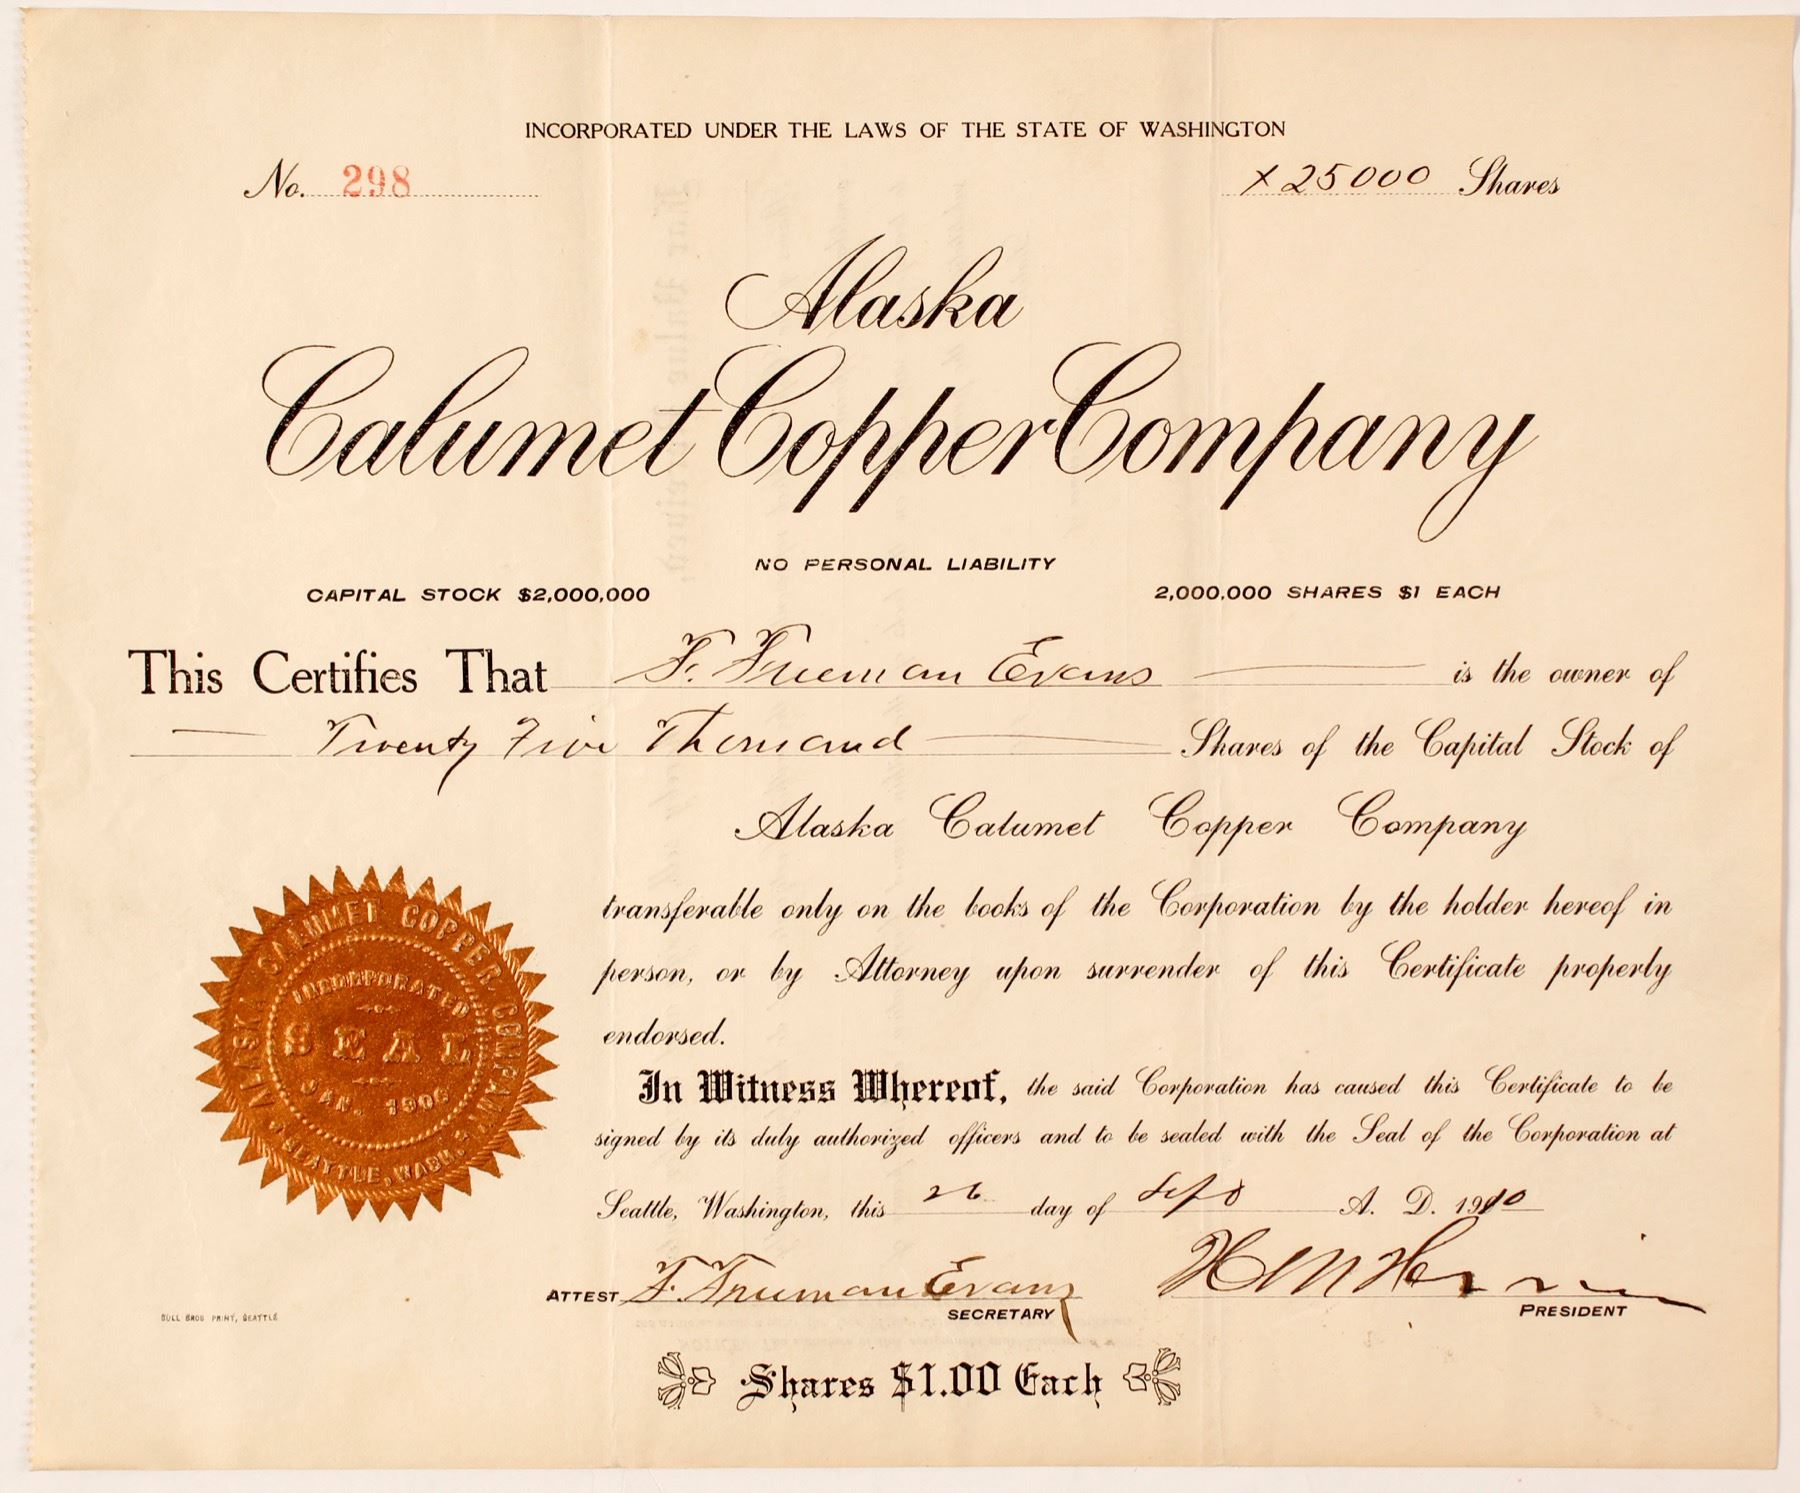 INCORPORATED UNDER THE LAWS OF THE STATE OF WASHINGTON
No. 298
x 25000 Shares
Alaska
Calumet Copper Company
NO PERSONAL LIABILITY
CAPITAL STOCK $2,000,000
2,000,000 SHARES $1 EACH
This Certifies That F. Freeman Evans is the owner of
Twenty Five Thousand Shares of the Capital Stock of
Alaska Calumet Copper Company
transferable only on the books of the Corporation by the holder hereof in
person, or by Attorney upon surrender of this Certificate properly
endorsed.
In Witness Whereof, the said Corporation has caused this Certificate to be
signed by its duly authorized officers and to be sealed with the Seal of the Corporation at
Seattle, Washington, this 26 day of Sept A. D. 1910
ALASKA CALUMET COPPER COMPANY
INCORPORATED
SEAL
JAN. 1908
SEATTLE, WASH.
ATTEST F. Freeman Evans
SECRETARY
PRESIDENT
BULL BROS PRINT, SEATTLE
Shares $1.00 Each